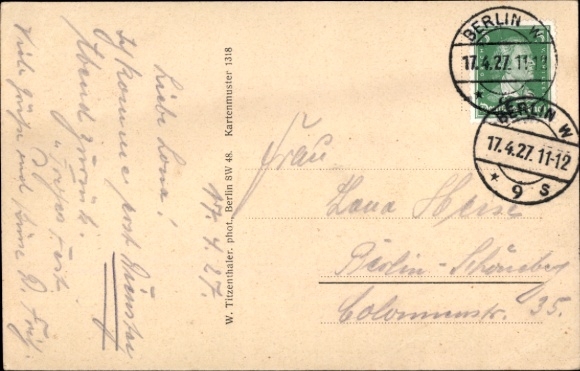 17. 4. 27.
Liebe Lona!
Ich komme erst Dienstag
Abend zurück.
Frohes Fest.
Viele Grüße und Küsse D. Fritz.
W. Titzenthaler. phot., Berlin SW 48. Kartenmuster 1318
BERLIN W
17.4.27.11-12
BERLIN W
17.4.27.11-12
* 9 S
Frau
Lona Heise
Berlin-Schöneberg
Colonnenstr. 35.